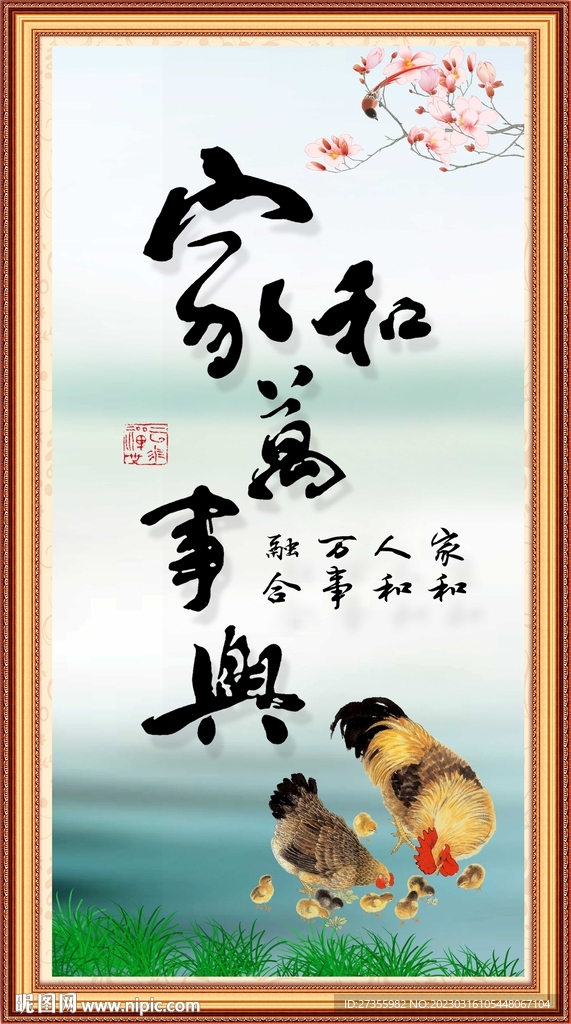 家和萬事興
家和
人和
万事
融合
昵图网 www.nipic.com
ID:27355982 NO:20230316105448067104